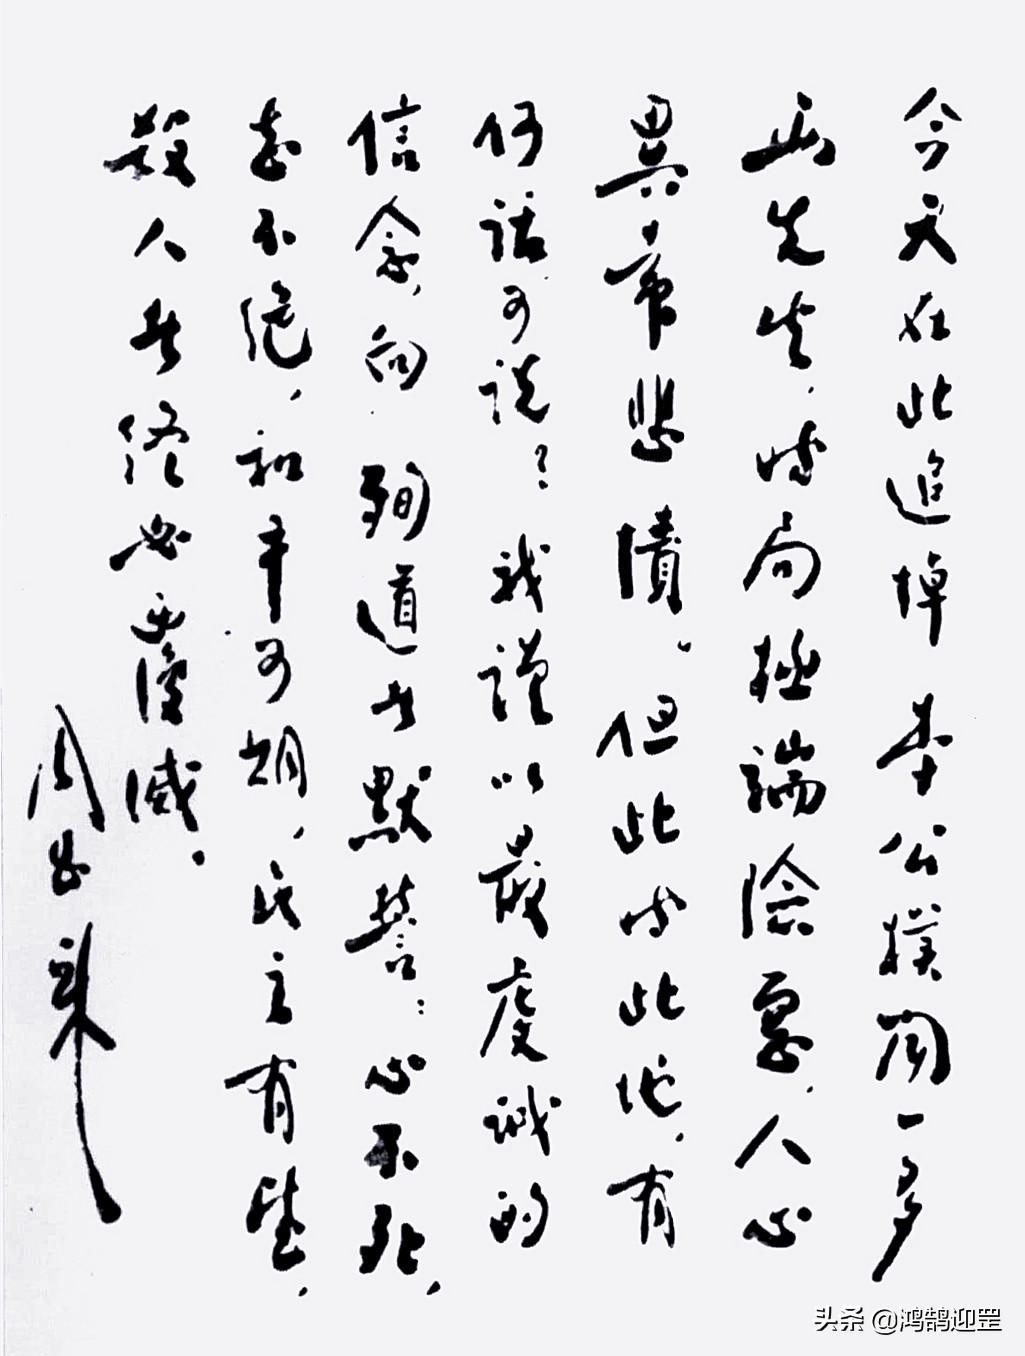 今天在此追悼李公樸闻一多
两先生，时局极端险恶，人心
異常悲憤。但此时此地，有
何话可说？我謹以最虔诚的
信念，向殉道者默誓：心不死，
志不绝，和平可期，民主有望，
殺人者终必覆滅。
周恩来
头条 @鸿鹄迎罡